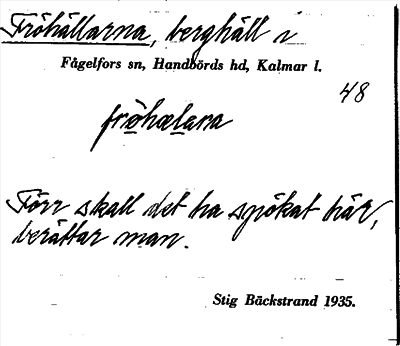 Fröhällarna, berghäll i
Fågelfors sn, Handbörds hd, Kalmar l.
48
fröhælana
Förr skall det ha spökat här,
berättar man.
Stig Bäckstrand 1935.